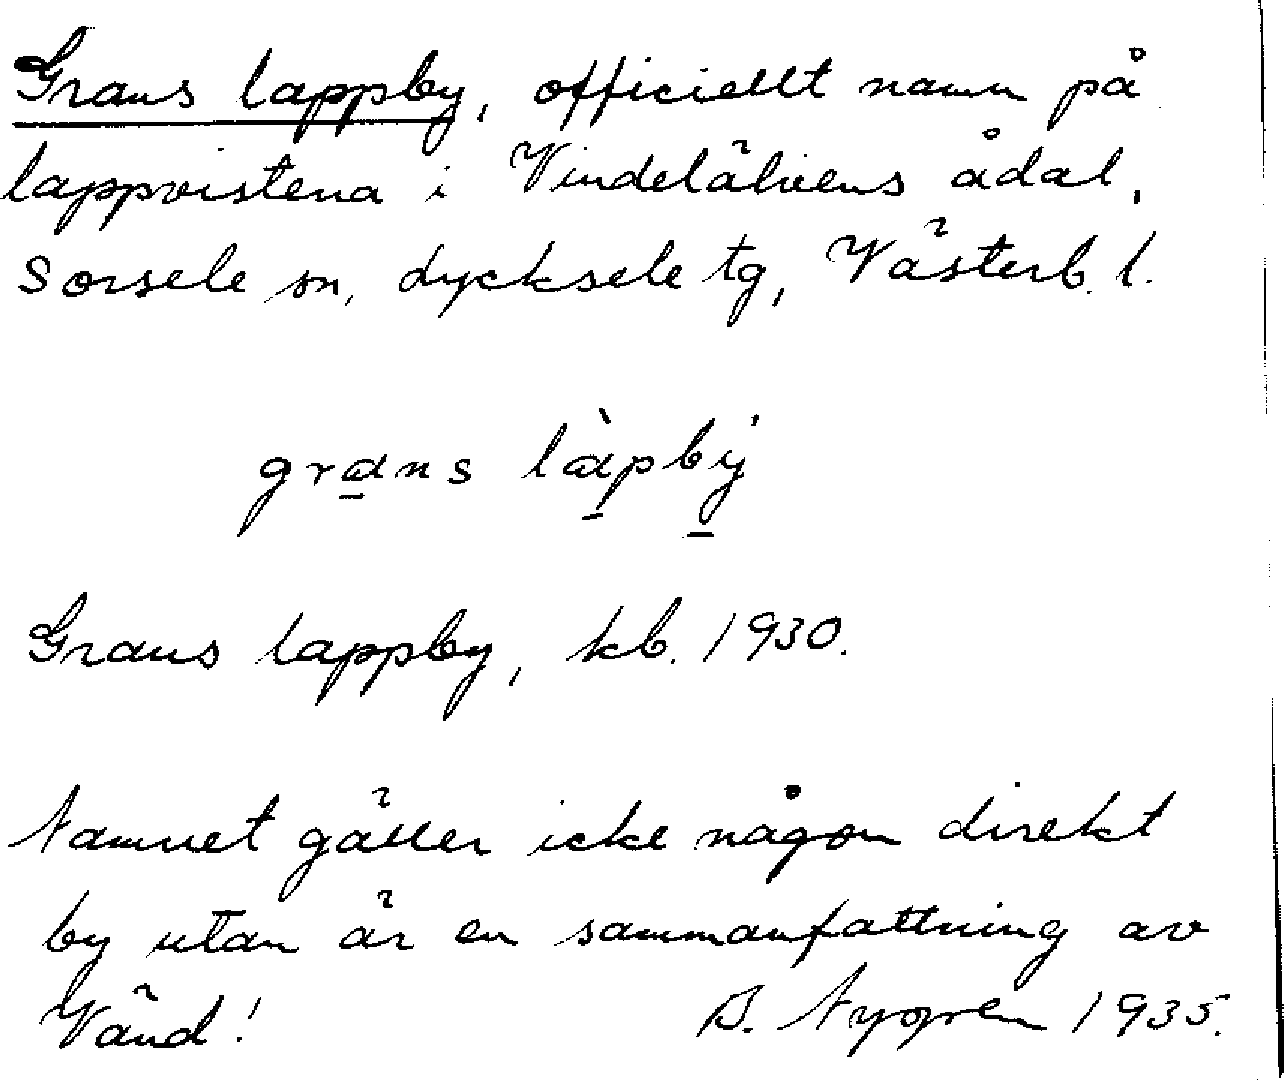 Grans lappby, officiellt namn på
lappvistena i Vindelälvens ådal,
Sorsele sn, Lycksele tg, Västerb. l.
grans làpbý
Grans lappby, kb. 1930.
Namnet gäller icke någon direkt
by utan är en sammanfattning av
Vänd! B. Nygren 1935.